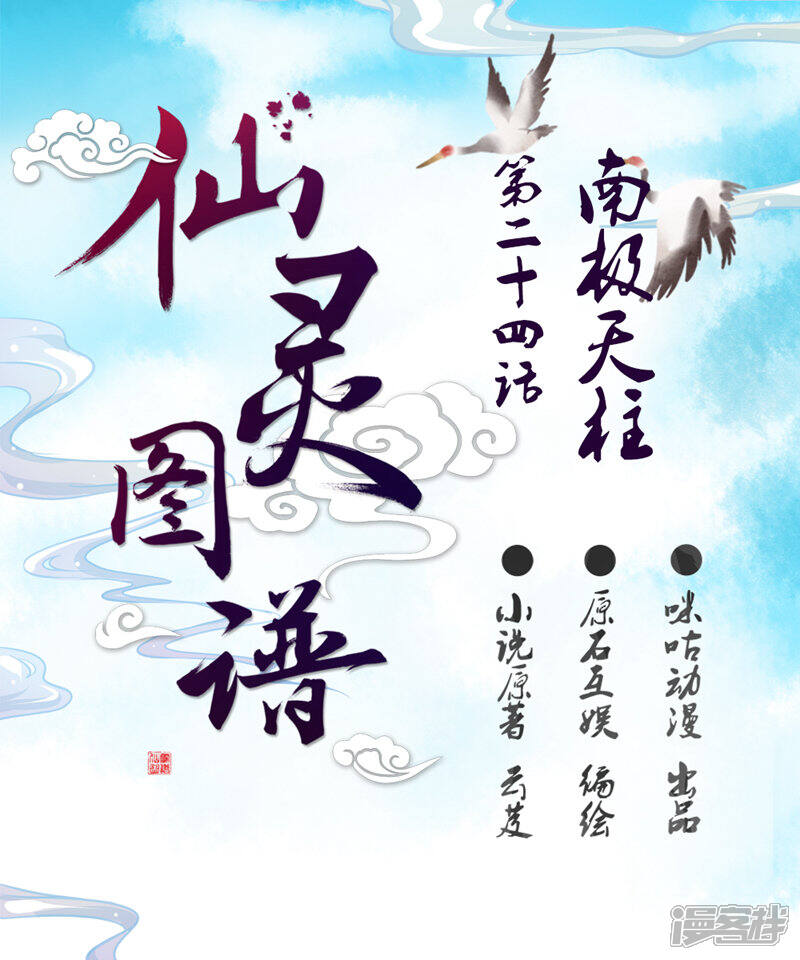 仙灵图谱
南极天柱
第二十四话
咪咕动漫 出品
原石互娱 编绘
小说原著 云芨
漫客栈